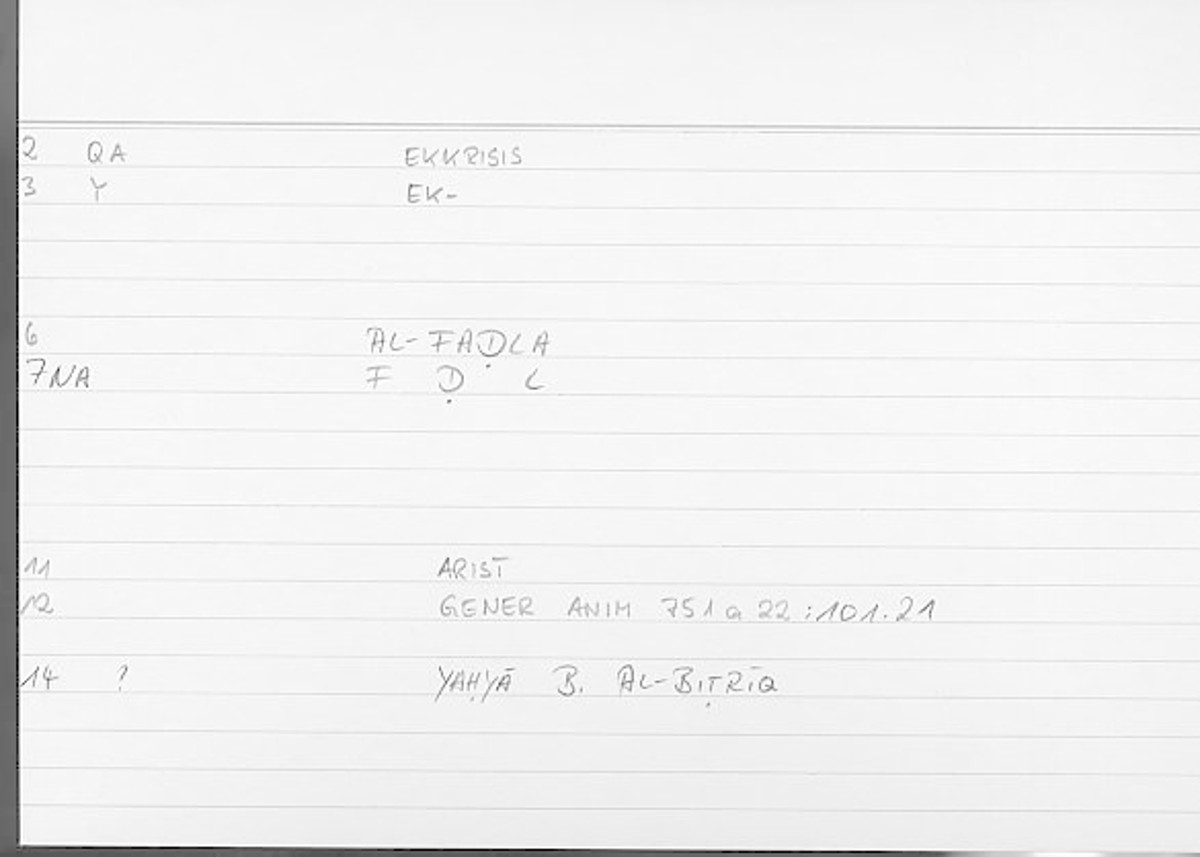 2 QA EKKRISIS
3 Y EK-
6 AL-FAḌLA
7NA F Ḍ L
11 ARIST
12 GENER ANIM 751a22:101.21
14 ? YAḤYĀ B. AL-BIṬRĪQ